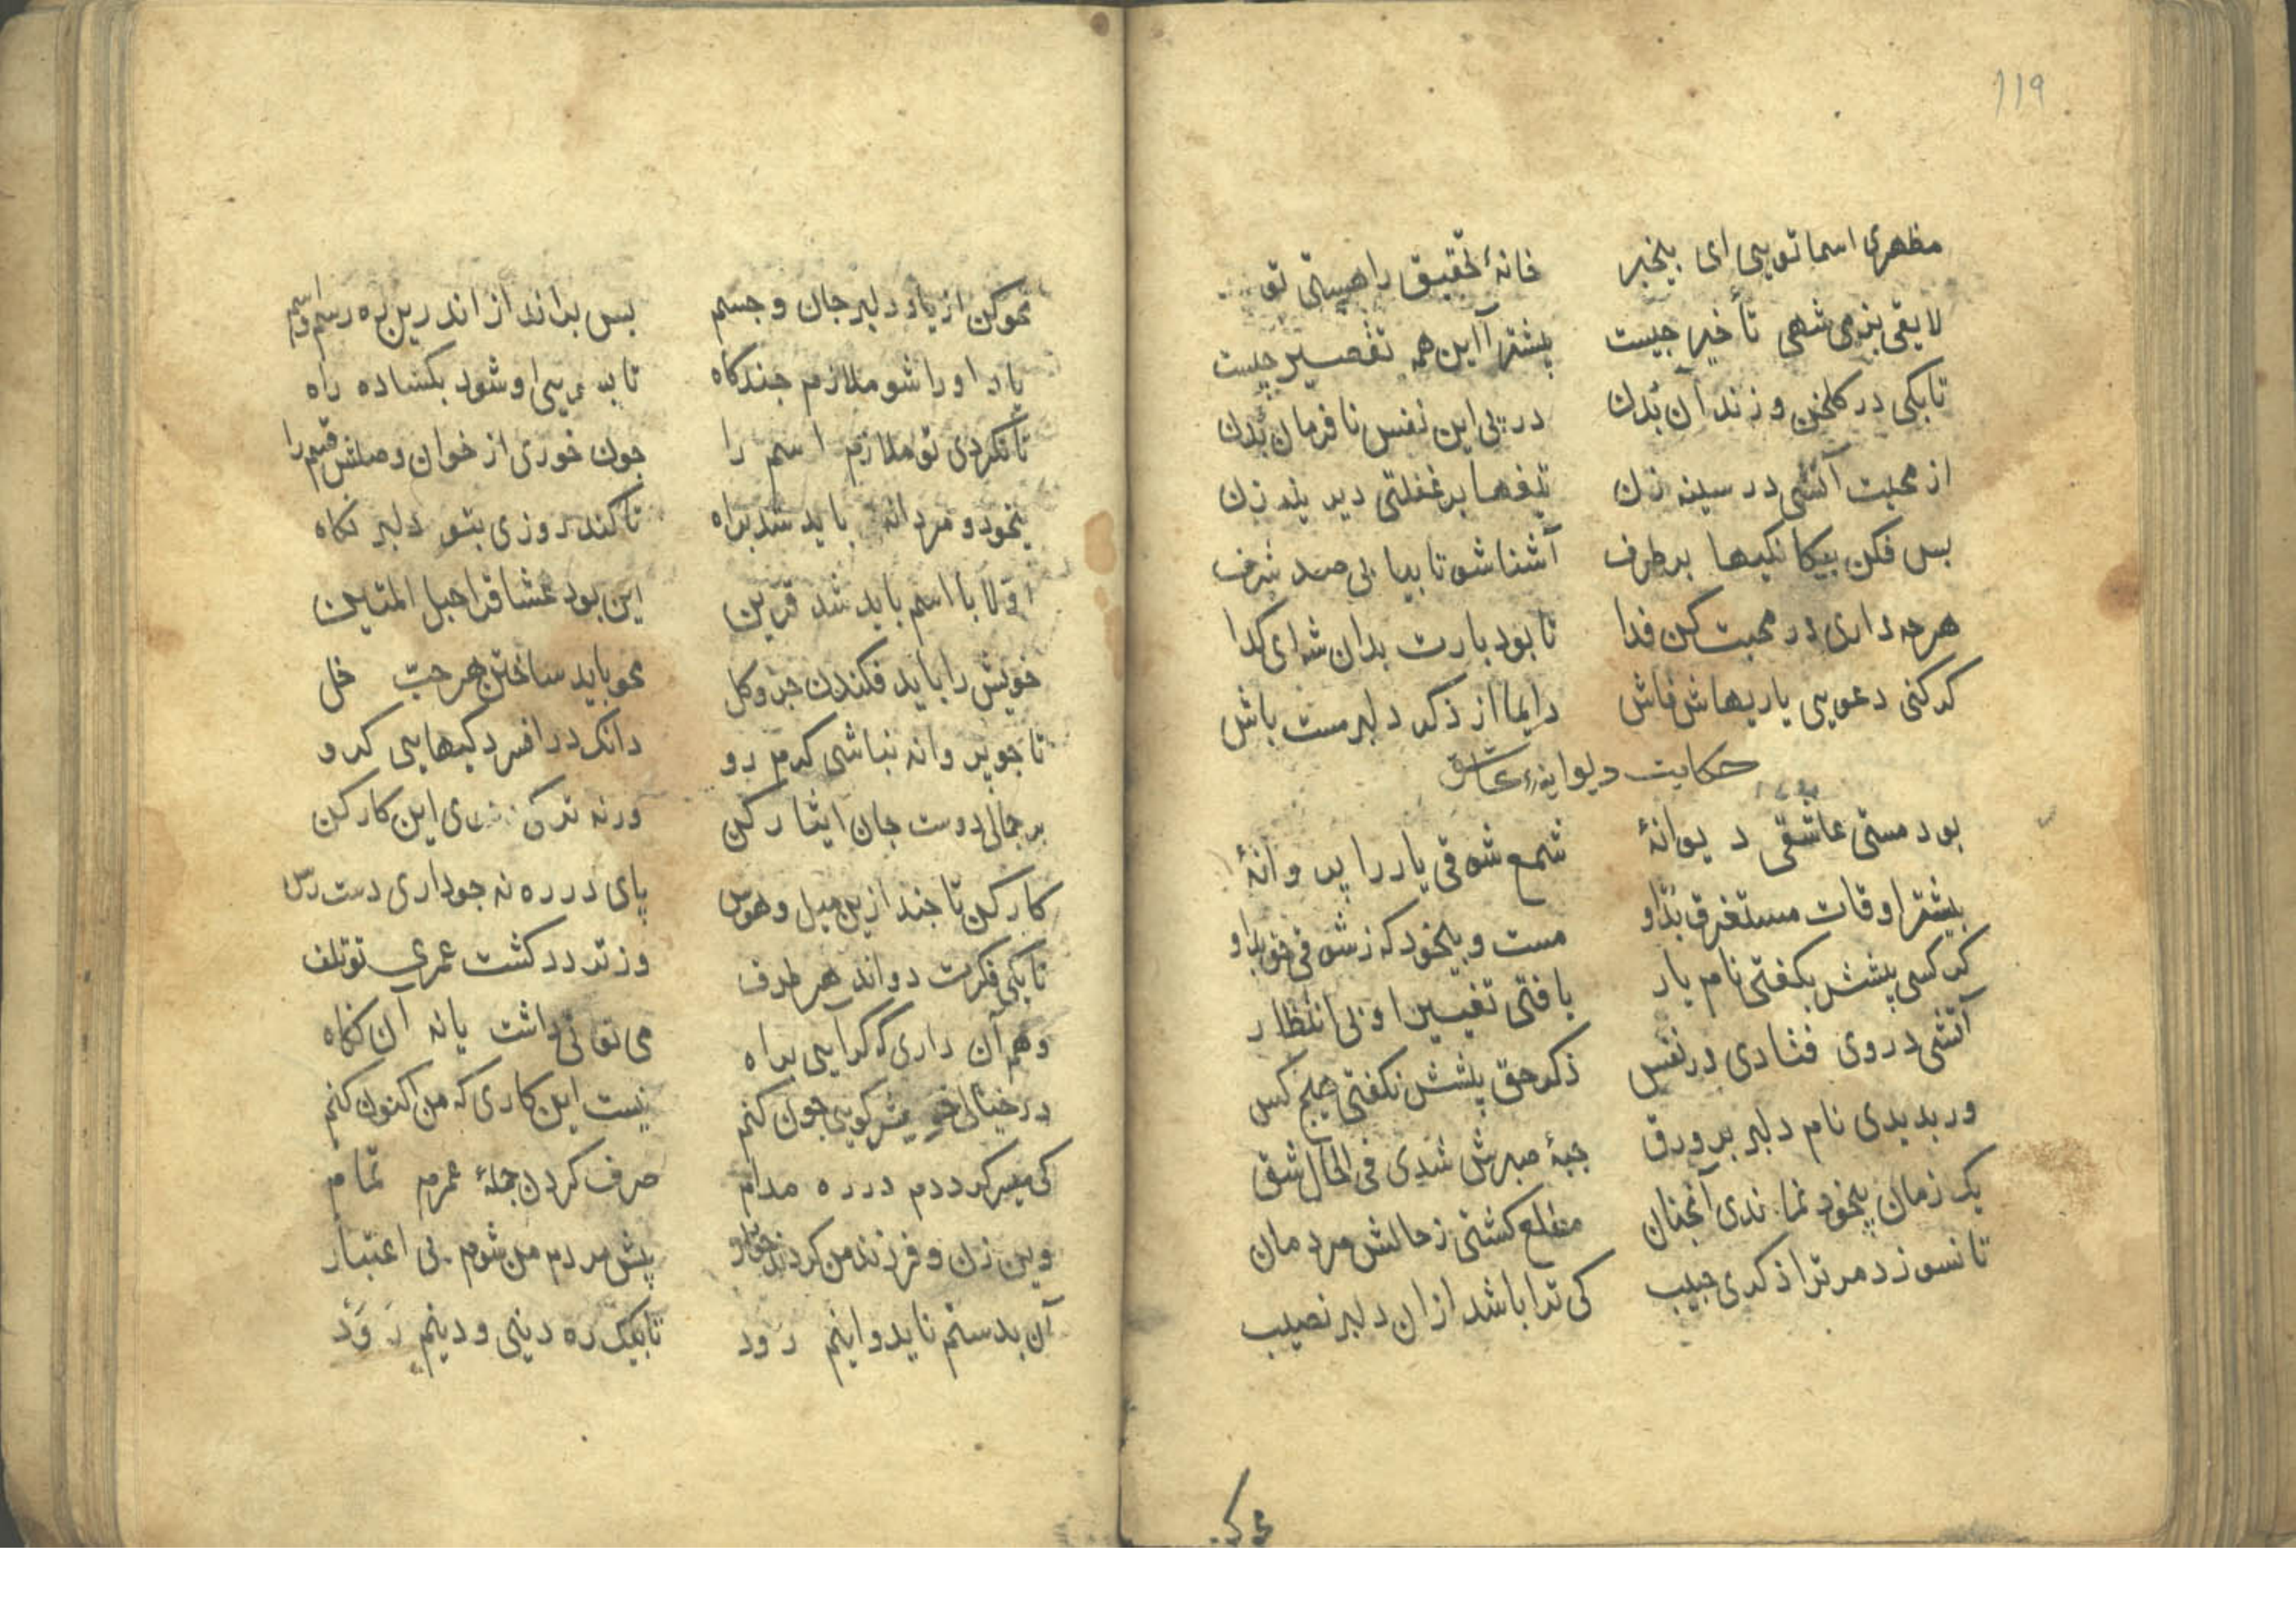 119
مظهری اسما تویی ای بیخبر خانهٔ تحقیق را هستی تو
لایقی بزمی شهی تأخیر جیست پیشتر آ این همه تقصیر جیست
تابکی در کلخن و زندان بُدن در پی این نفس نافرمان بُدن
از محبت آتشی در سینه زن تیغها بر غفلتی دیرینه زن
بس فکن بیکانکیها برطرف آشنا شو تا بیابی صد شرف
هرجه داری در محبت کن فدا تا بود بارت بدان شه ای کدا
کر کنی دعویی یاریهاش فاش دایما از ذکر دلبر مست باش
حکایت دیوانهٔ عاشق
بود مستی عاشقی دیوانهٔ شمع شوقی یار را پروانهٔ
بیشتر اوقات مستغرق بُد او مست و بیخود که ز شوقی بد او
کر کسی پیشش بکفتی نام یار یافتی تغییر او بی انتظار
آتشی در وی فتادی در نفس ذکر حق پیشش نکفتی هیج کس
ور بدیدی نام دلبر بر ورق جبهٔ صبرش شدی فی الحال شق
یک زمان بیخود نماندی آنجنان مطلع کشتی ز حالش مردمان
تا نسوزد مر ترا ذکری حبیب کی ترا باشد از ان دلبر نصیب
محو کن
محو کن از یاد دلبر جان و جسم بس برانداز اندرین ره رسم و اسم
یاد او را شو ملازم جندکاه تا بسویی او شود بکشاده راه
تا نکردی تو ملازم اسم را جون خوری از خوان وصلش قسم را
بیخود و مردانه باید شد براه تا کند روزی بتو دلبر نکاه
اوّلا با اسم باید شد قرین این بود عشاق را حبل المتین
خویش را باید فکندن جزو کل محو باید ساختن هر حبّ خل
تا جو پروانه نباشی کرم رو دانک در افسردکیهایی کرو
بر جمالی دوست جان ایثار کن ورنه ترک این کار کن
کار کن تا جند ازین میل و هوس پای در ره نه جو داری دست رس
تا بکی فکرت دواند هر طرف وز تردد کشت عمری تو تلف
وهم آن داری که کر آیی براه می توانی داشت یا نه آن نکاه
در خیالی خویش کویی جون کنم نیست این کاری که من اکنون کنم
کی میسر کرددم در ره مدام صرف کردن جملهٔ عمرم تمام
وین زن و فرزند من کردند خوار پیش مردم من شوم بی اعتبار
آن بدستم ناید و اینم رود تا بیک ره دینی و دینم رَوَد